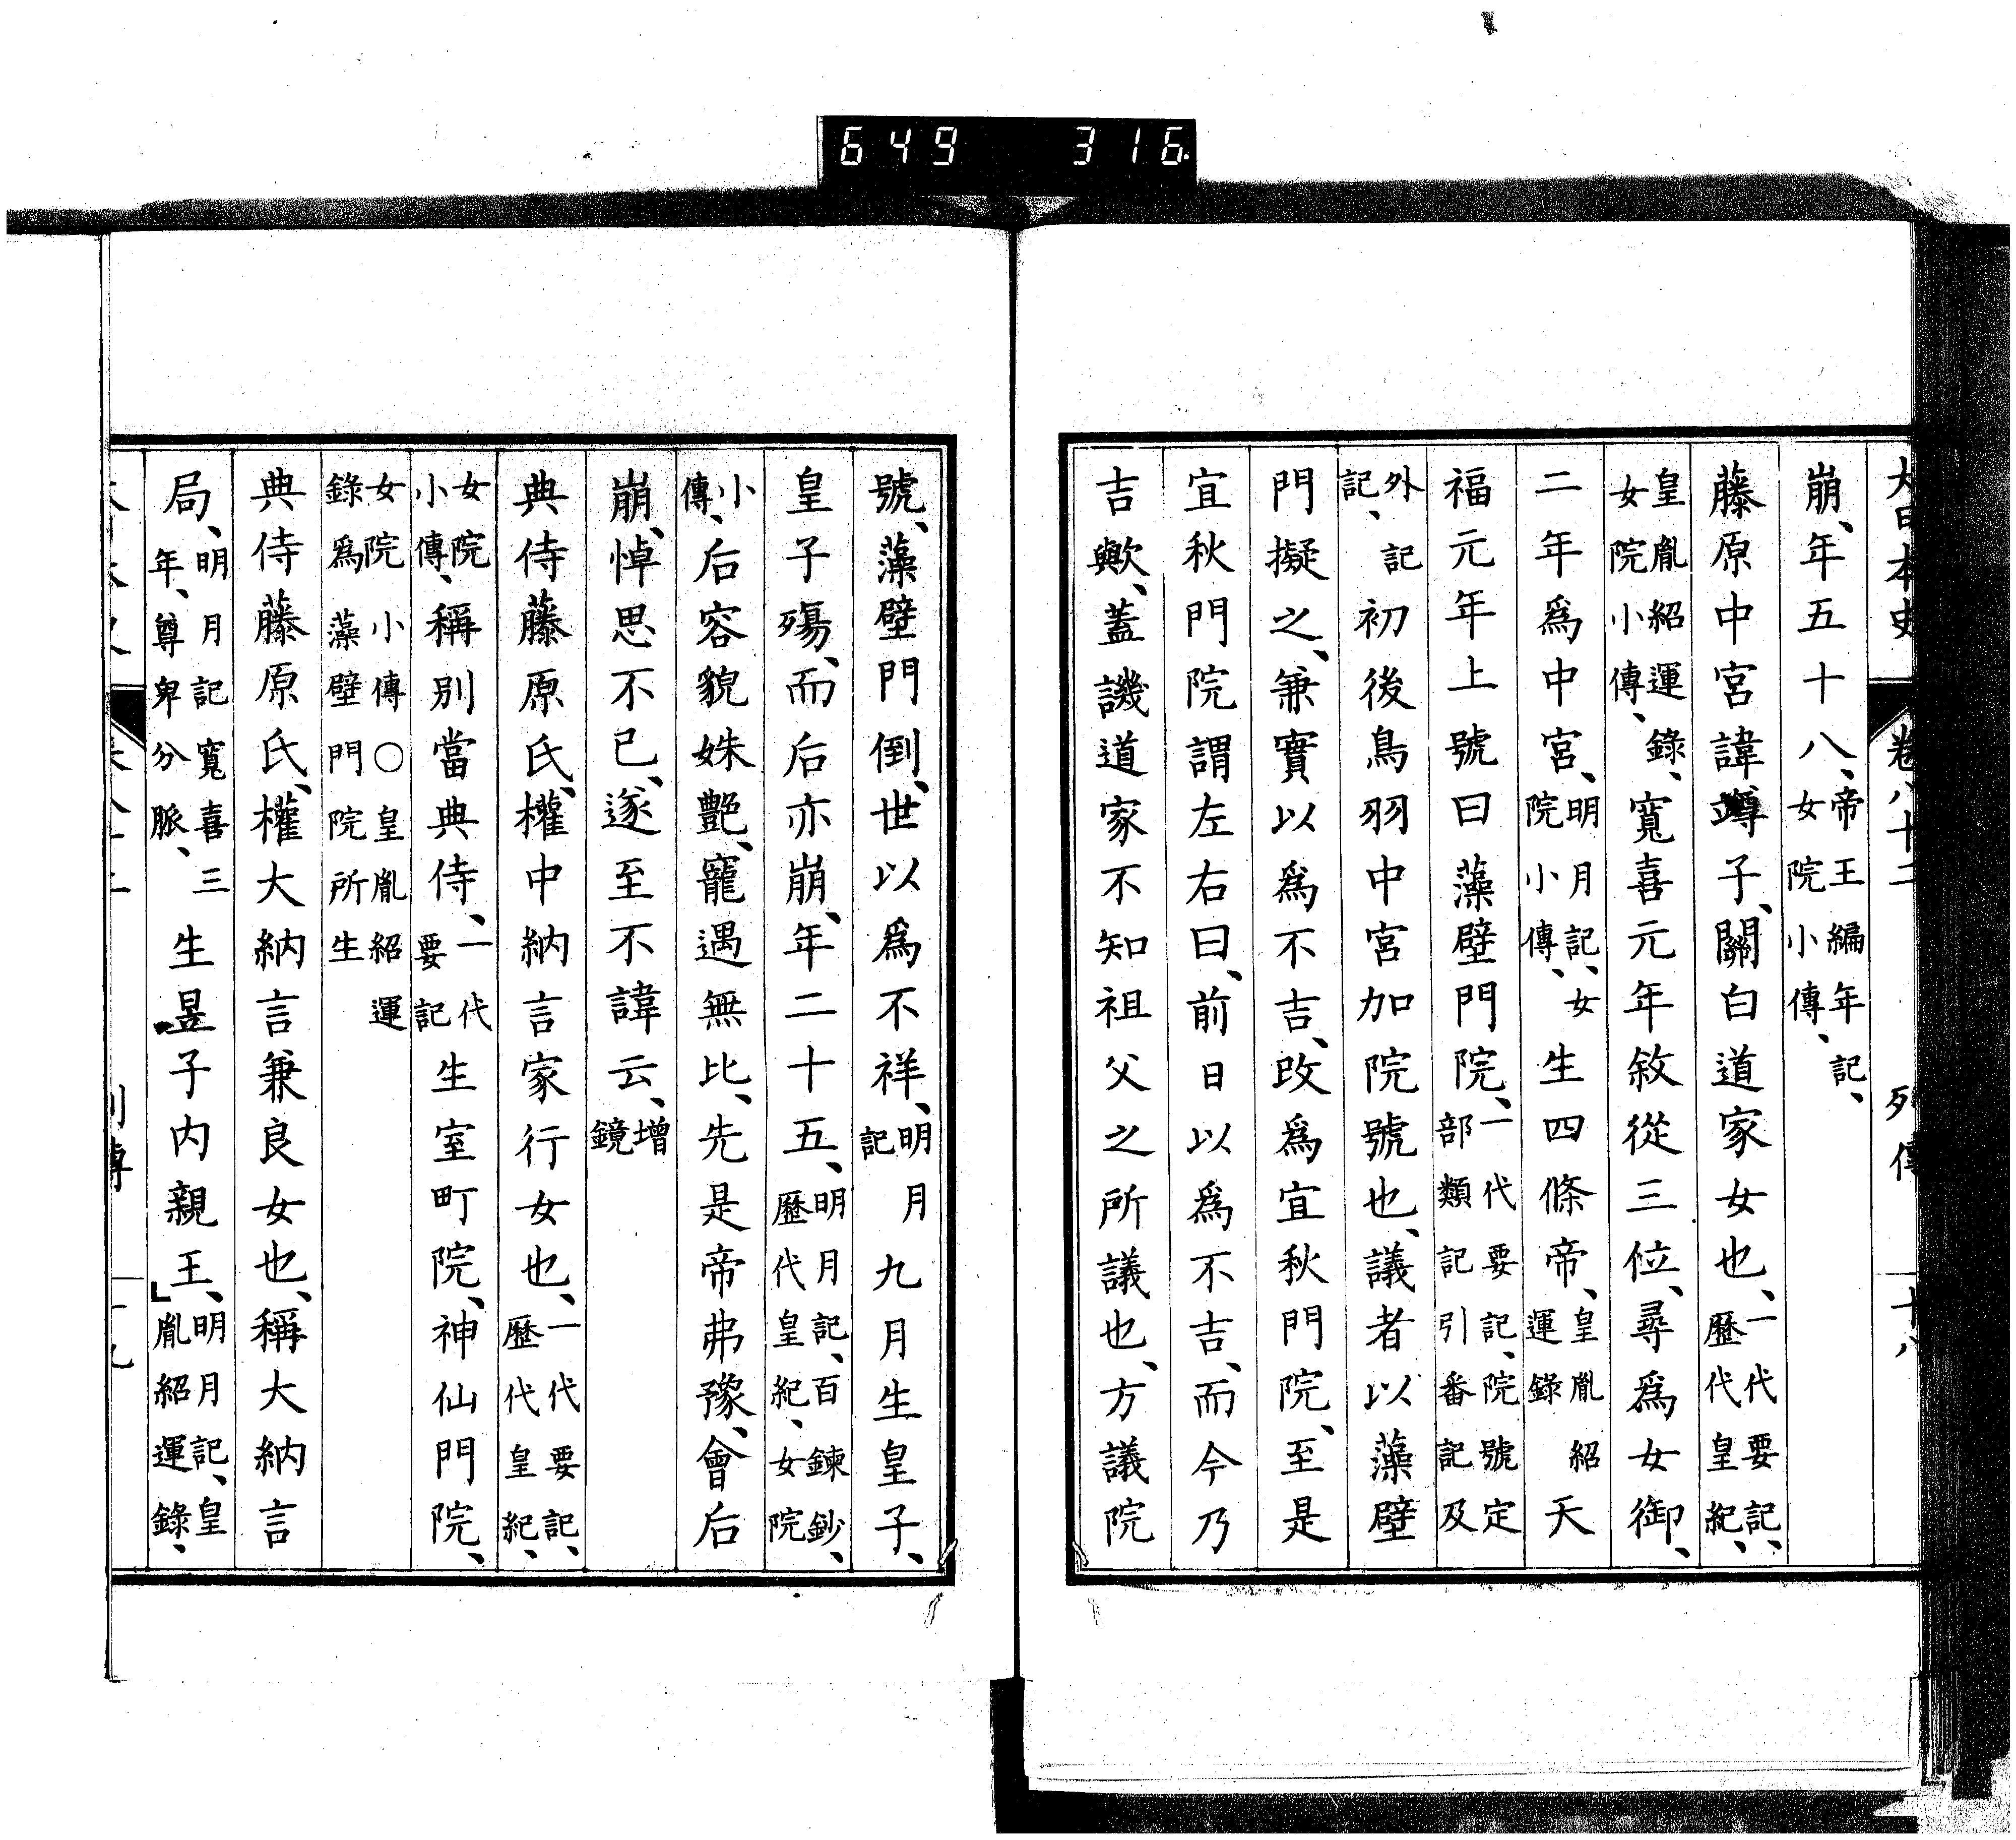 649 316
大日本史 卷八十二 列傳 十八
崩、年五十八、帝王編年記、女院小傳、
藤原中宮諱竴子、關白道家女也、一代要記、歷代皇紀、
皇胤紹運錄、女院小傳、寬喜元年敘從三位、尋爲女御、
二年爲中宮、明月記、女院小傳、生四條帝、皇胤紹運錄天
福元年上號曰藻壁門院、一代要記、院號定部類記引番記及
外記記、初後鳥羽中宮加院號也、議者以藻壁
門擬之、兼實以爲不吉、改爲宜秋門院、至是
宜秋門院謂左右曰、前日以爲不吉、而今乃
吉歟、蓋譏道家不知祖父之所議也、方議院
號、藻壁門倒、世以爲不祥、明月記九月生皇子、
皇子殤、而后亦崩、年二十五、明月記、百鍊鈔、歷代皇紀、女院
小傳、后容貌姝艷、寵遇無比、先是帝弗豫、會后
崩、悼思不已、遂至不諱云、增鏡
典侍藤原氏、權中納言家行女也、一代要記、歷代皇紀、
女院小傳、稱別當典侍、一代要記生室町院、神仙門院、
女院小傳○皇胤紹運錄爲藻壁門院所生
典侍藤原氏、權大納言兼良女也、稱大納言
局、明月記寬喜三年、尊卑分脈、生昱子内親王、明月記、皇胤紹運錄、